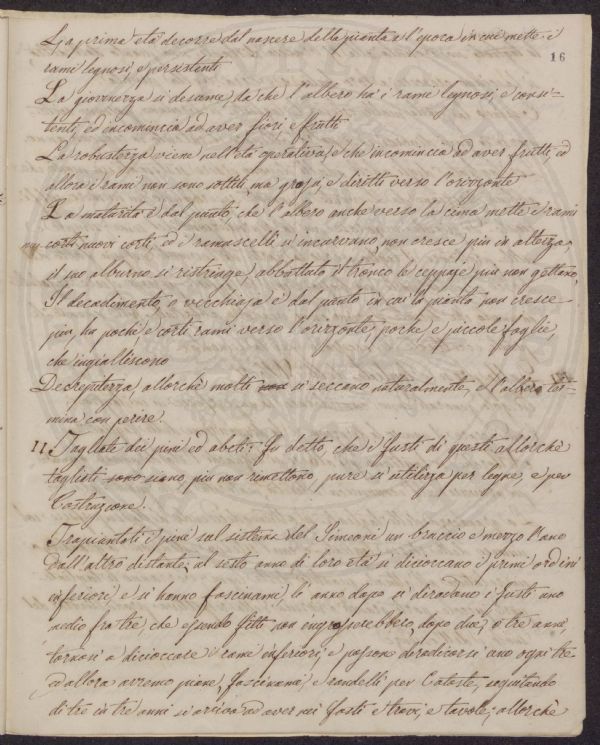 La prima età decorre dal nascere della pianta a l'epoca in cui mette i
16
rami legnosi, e persistenti
La giovinezza si desume, da che l'albero ha i rami legnosi, e consi-
tenti, ed incomincia ad aver fiori, e frutti
La robustezza viene nell'età operativa, e che incomincia ad aver frutti, ed
allora i rami non sono sottili, ma grossi, e diritti verso l'orizzonte
La maturità è dal punto, che l'albero anche verso la cima mette i rami
corti nuovi corti, ed i ramascelli si incurvano, non cresce più in altezza,
il suo alburno si ristringe, abbattuto il tronco le ceppaje più non gettano,
Il decadimento, o vecchiaja è dal punto in cui la pianta non cresce
più, ha pochi, e corti rami verso l'orizzonte, poche e piccole foglie,
che ingialliscono
Decrepitezza, allorchè molti si seccano naturalmente, e l'albero ter-
mina con perire.
11. Tagliate dei pini ed abeti: Fu detto, che i fusti di questi allorchè
tagliati sono siano, più non rimettono, pure si utilizza per legne, e per
Costruzione.
Trapiantati i pini sul sistema del Simeoni un braccio e mezzo l'uno
dall'altro distante, al sesto anno di loro età si dicioccano i primi ordini
inferiori, e si hanno fascinami, li anno dopo si diradano i fusti uno
medio fra tre, che essendo fitti non ingrosserebbero, dopo due, o tre anni
tornasi a dicioccare i rami inferiori, e possono diradicarsi uno ogni tre,
ed allora avremo pione, fascinami, e randelli per Cataste, seguitando
di tre in tre anni si arriva ad aver nei fusti e travi, e tavole; allorchè